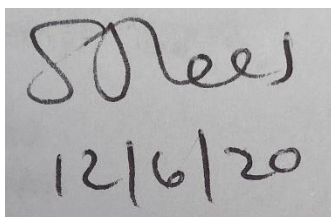 SRees
12/6/20